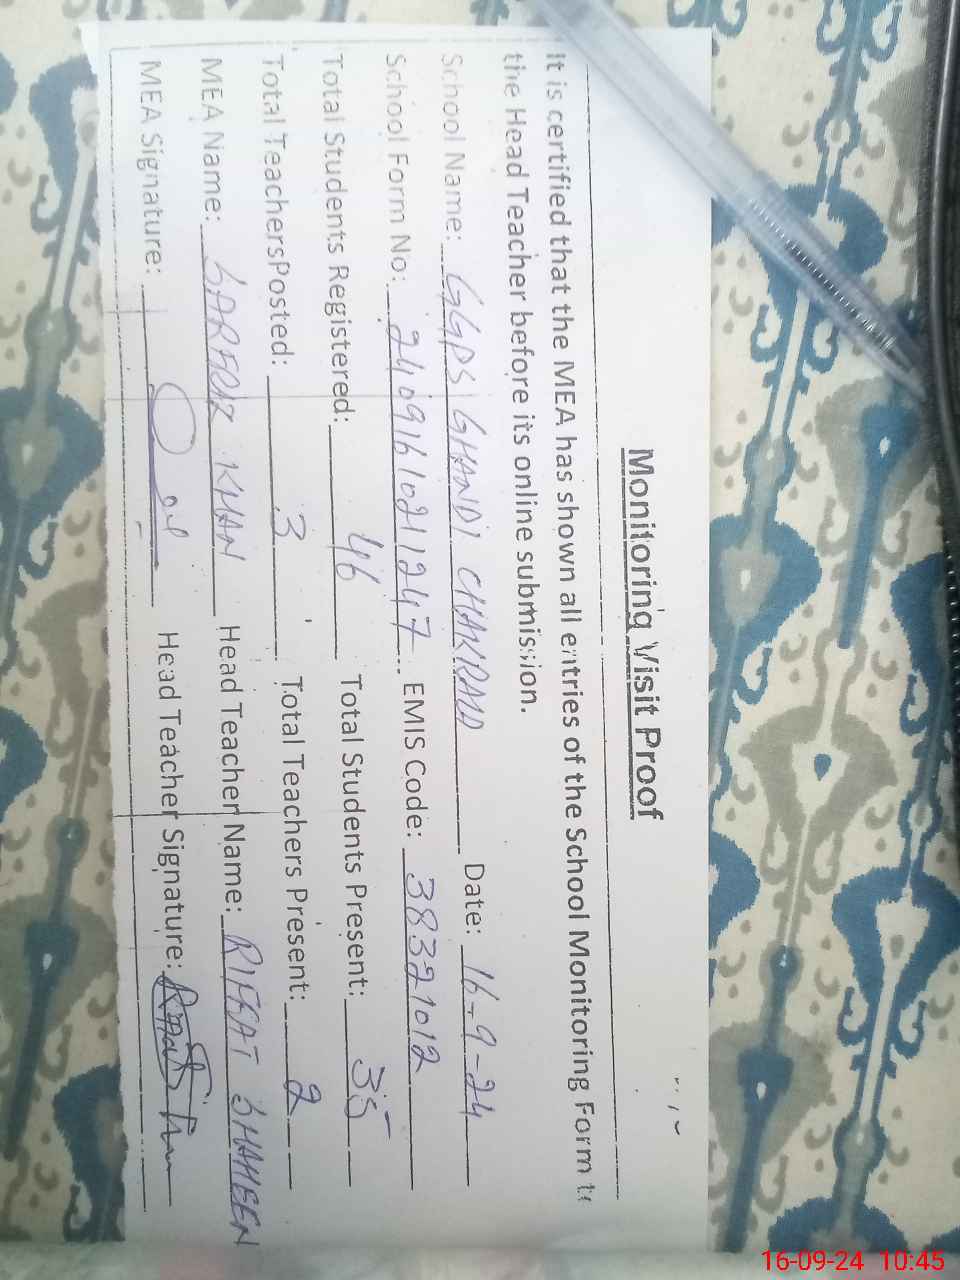 Monitoring Visit Proof
It is certified that the MEA has shown all entries of the School Monitoring Form to
the Head Teacher before its online submission.
School Name: GGPS GHANDI CHAKRAND Date: 16-9-24
School Form No: 24091610211247 EMIS Code: 38321012
Total Students Registered: 46 Total Students Present: 35
Total Teachers Posted: 3 Total Teachers Present: 2
MEA Name: SARFRAZ KHAN Head Teacher Name: RIFFAT SHAHEEN
MEA Signature: Head Teacher Signature:
16-09-24 10:45